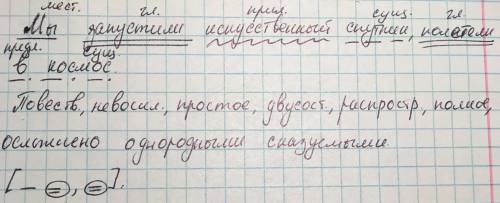 мест. гл. прил. сущ. гл.
Мы запустили искусственный спутник, полетели
предл. сущ.
в космос.
Повеств, невоскл, простое, двусост, распростр, полное,
осложнено однородными сказуемыми.
[— =, =].